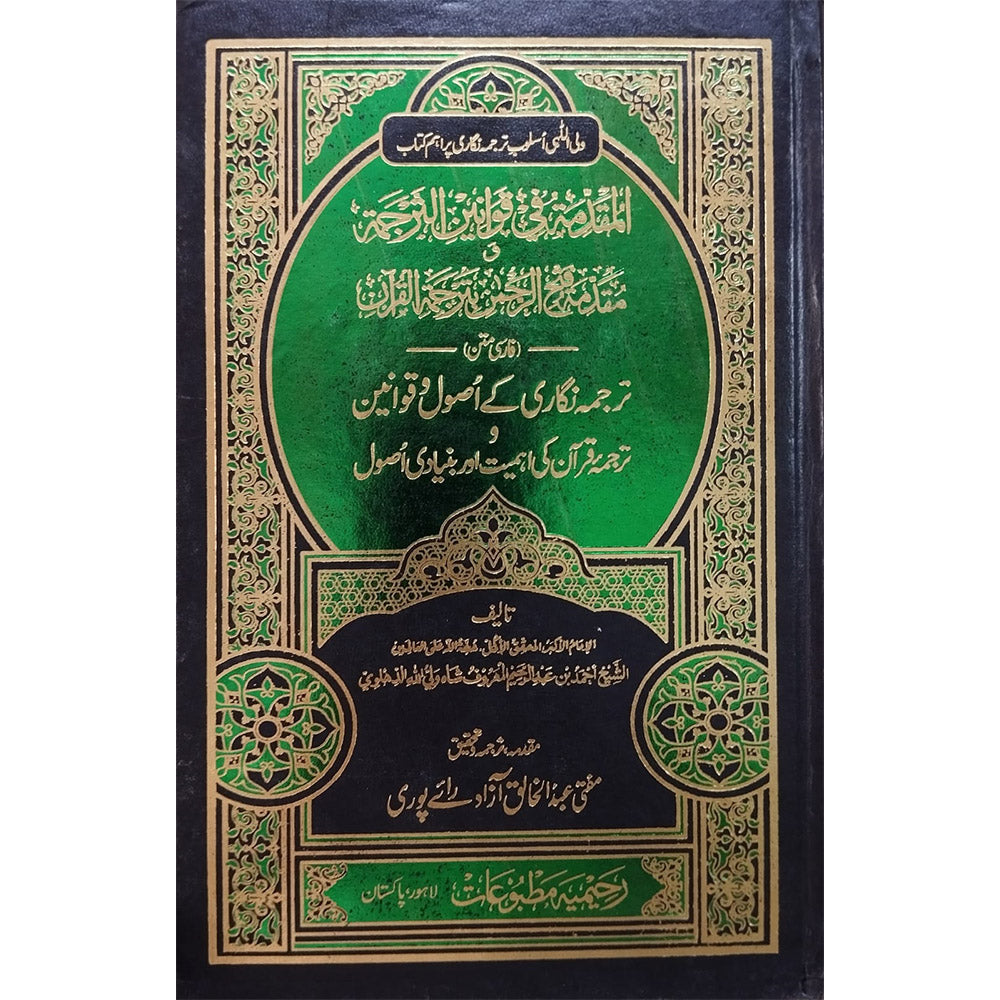 ولی اللّٰہی اُسلوبِ ترجمہ نگاری پر اہم کتاب
المُقَدِّمَةُ فِي قَوَانِينِ التَّرجَمَة
و
مُقَدِّمَة فَتحُ الرَّحمٰن بِتَرجَمَةِ القُرآن
(فارسی متن)
ترجمہ نگاری کے اُصول و قوانین
و
ترجمۂ قرآن کی اہمیت اور بنیادی اُصول
تالیف
الإمام الأكبر، المحقق الأكمل، حجة الله على العالمين
الشَّيخ أحمَد بن عَبد الرَّحِيم المَعرُوف شَاه وَلِيُّ اللّٰه الدِّهلَوِي
مقدمہ، ترجمہ و تحقیق
مفتی عبدُ الخالق آزاد رائے پوری
رحیمیہ مطبُوعات لاہور، پاکستان